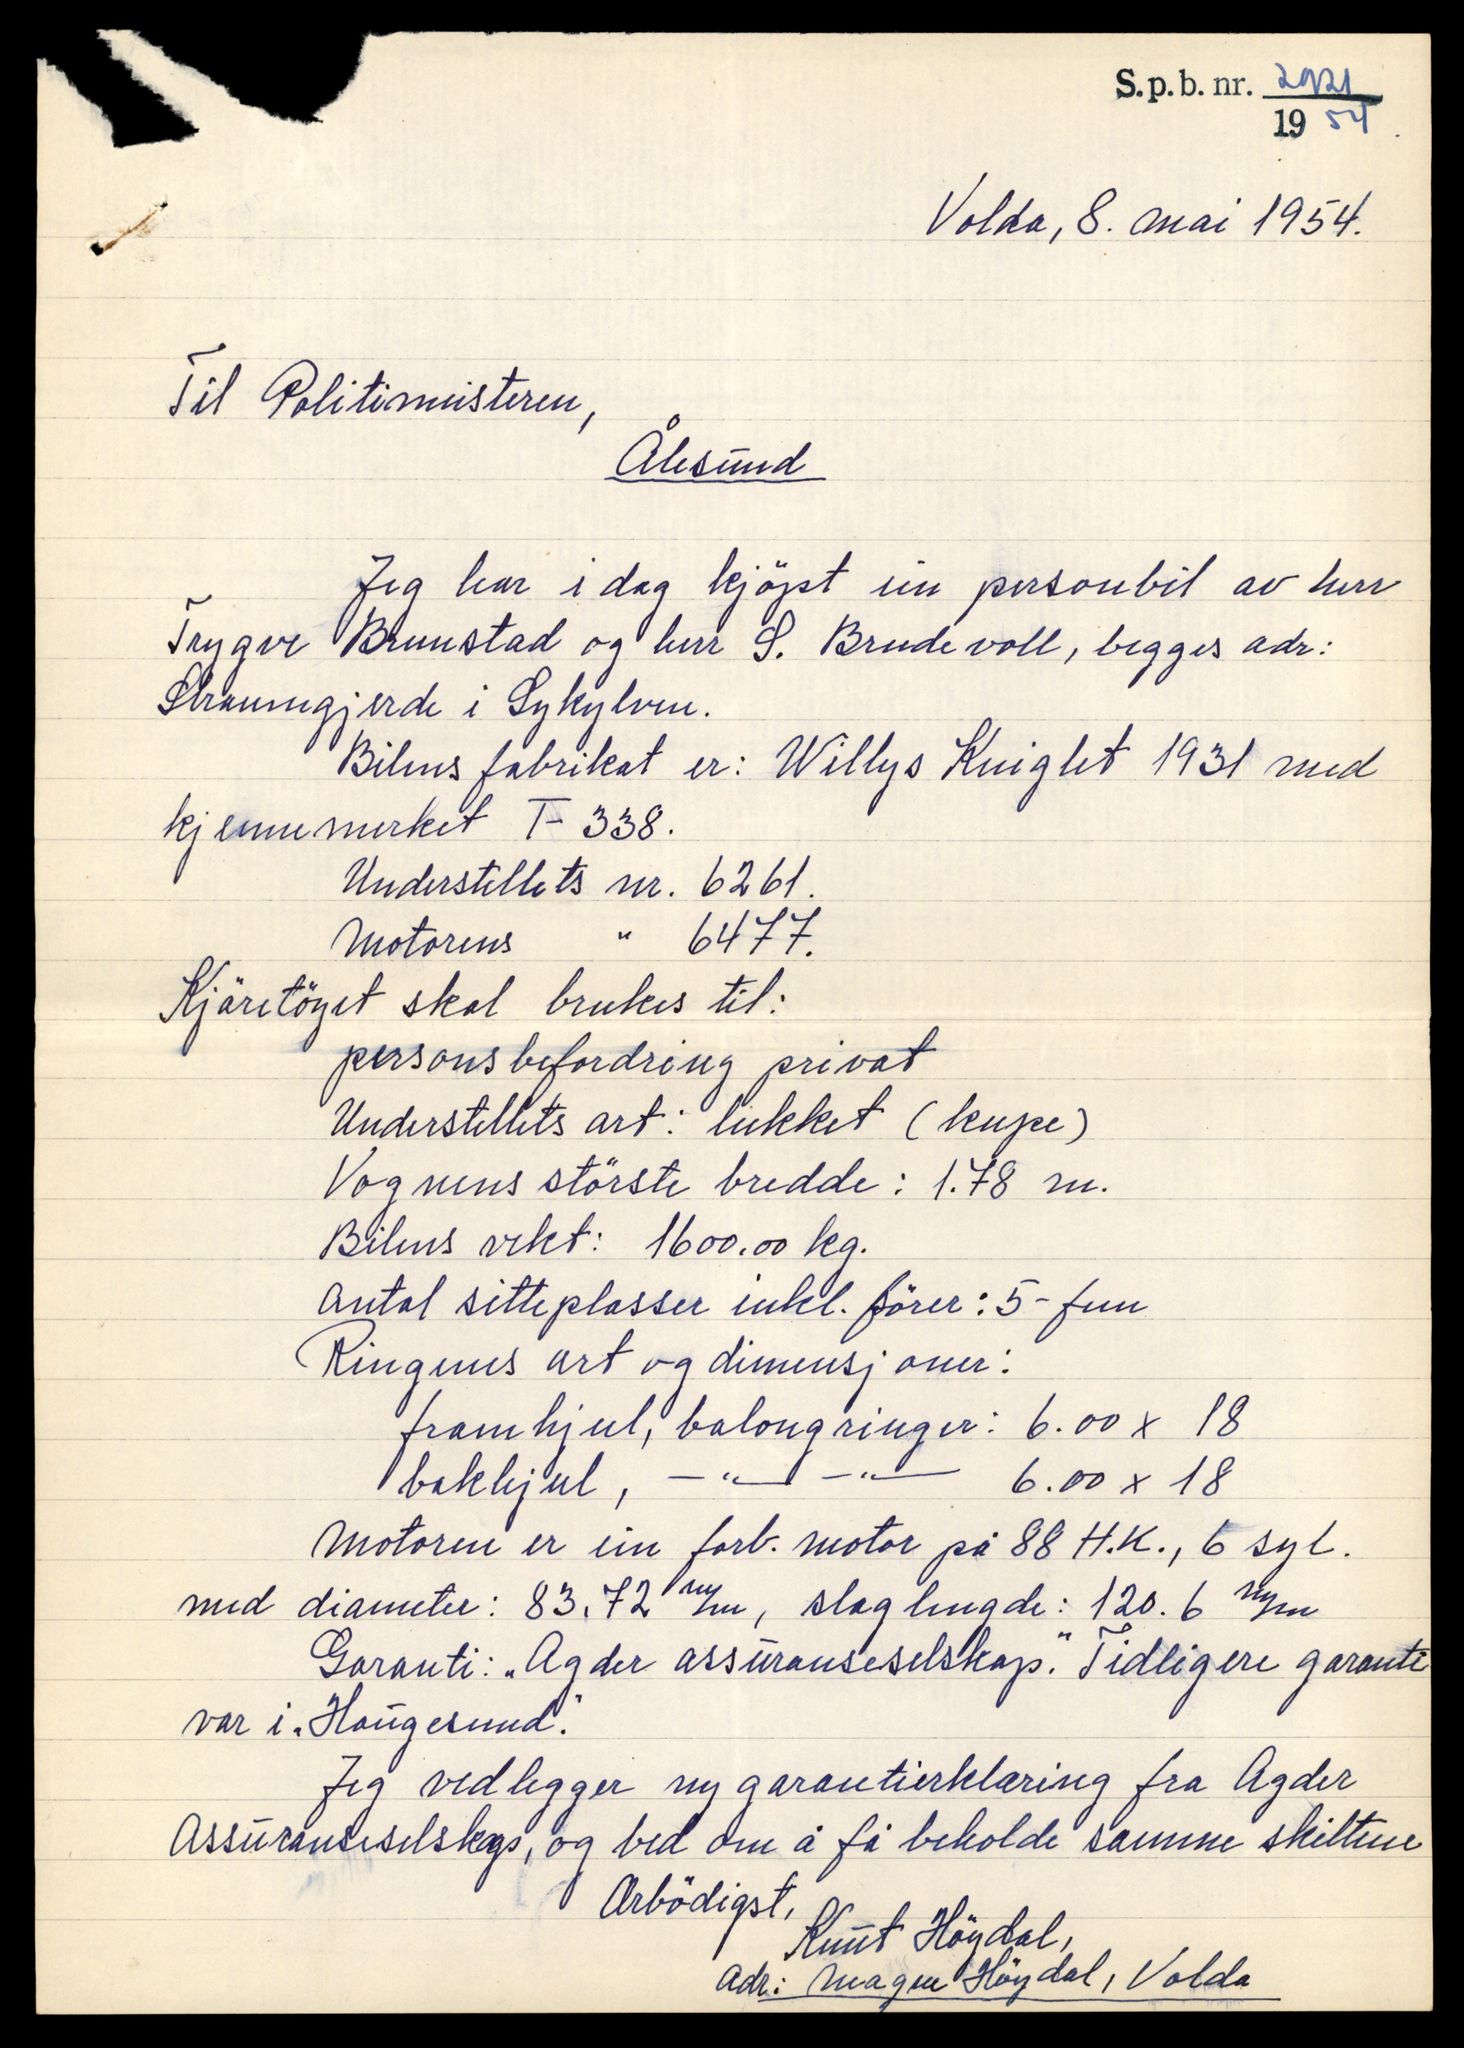 S.p.b. nr. 2921
19 54.
Volda, 8. mai 1954.
Til Politimisteren,
Ålesund
Jeg har i dag kjöpt ein personbil av herr
Trygve Brunstad og herr S. Brudevoll, begges adr:
Straumgjerde i Sykylven.
Bilens fabrikat er: Willys Knight 1931 med
kjennemerket T- 338.
Understellets nr. 6261.
Motorens " 6477.
Kjäretöyet skal brukes til:
personsbefordring privat
Understellets art: lukket (kupe)
Vognens störste bredde: 1.78 m.
Bilens vekt: 1600.00 kg.
Antal sitteplasser inkl. förer: 5- fem
Ringenes art og dimensjoner:
framhjul, balongringer: 6.00 x 18
bakhjul, —"— —"— 6.00 x 18
Motoren er ein forb. motor på 88 H.K., 6 syl.
med diameter: 83.72 m/m, slaglengde: 120.6 m/m
Garanti: „Agder assuranseselskap." Tidligere garanti
var i „Haugesund".
Jeg vedlegger ny garantierklæring fra Agder
Assuranseselskap, og bed om å få beholde samme skiltene
Ærbödigst,
Knut Höydal,
Adr: Magne Höydal, Volda